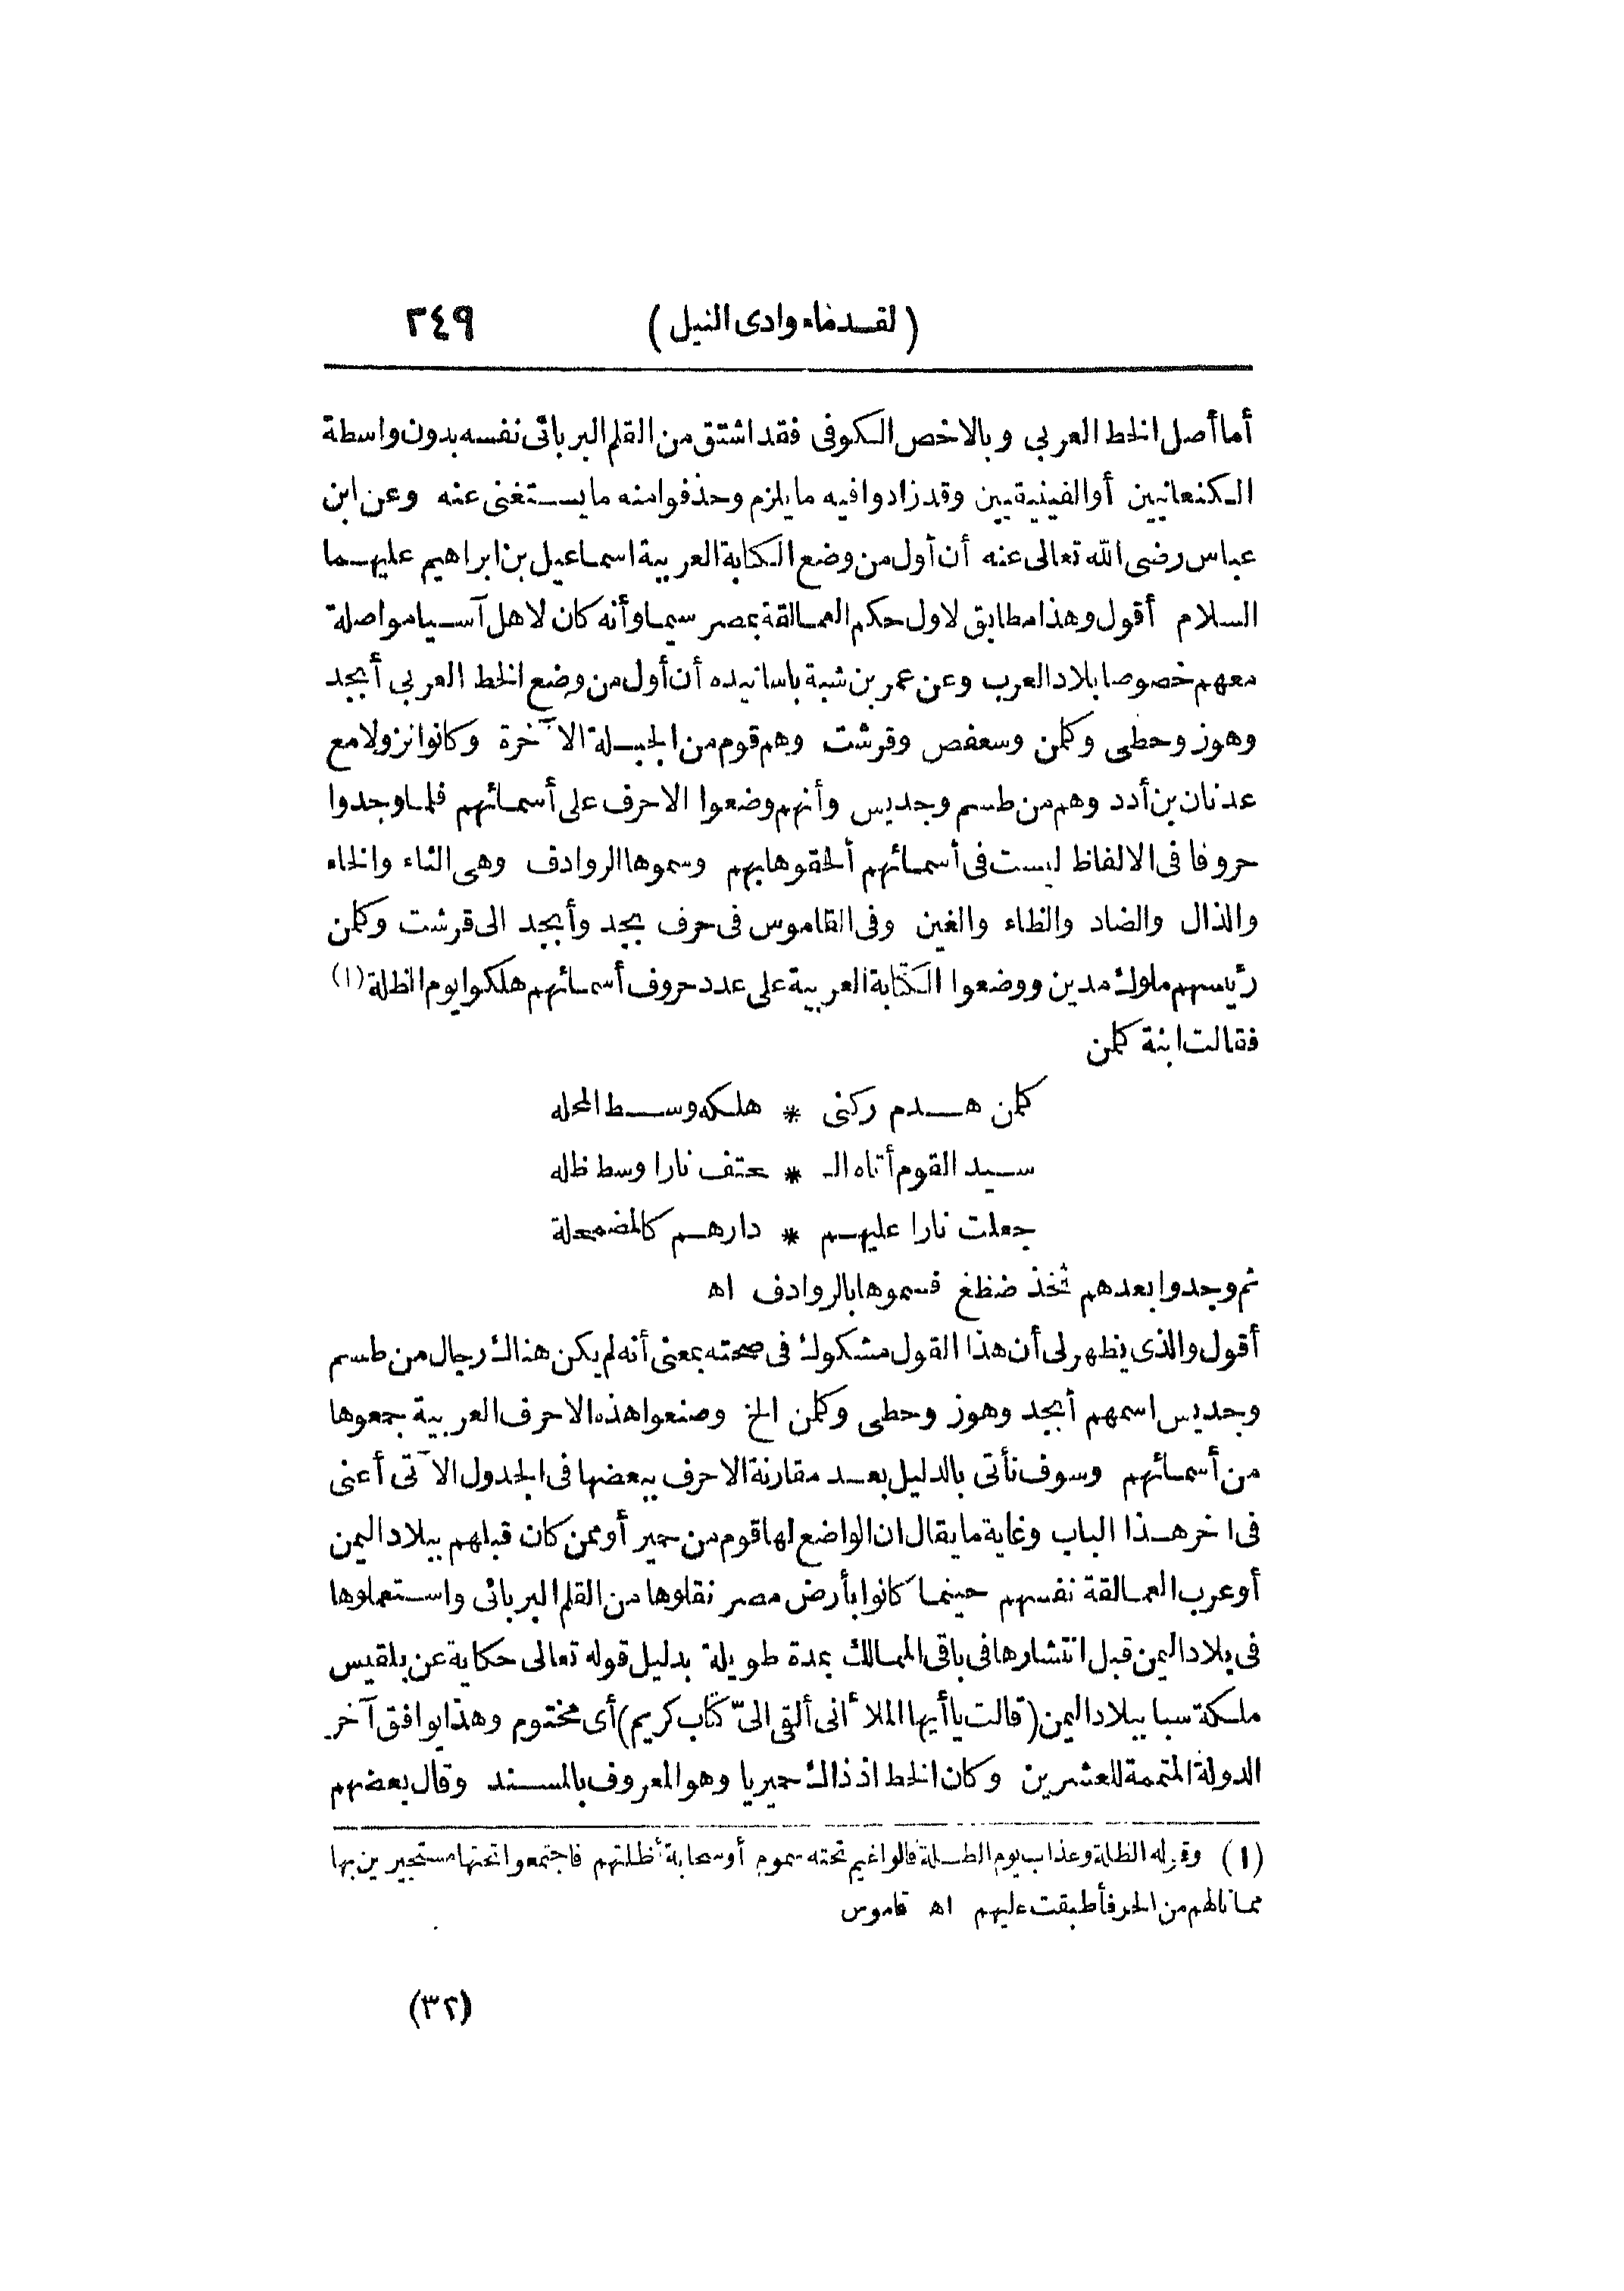 (لقدماء وادى النيل) ٢٤٩
أما أصل الخط العربى وبالاخص الكوفى فقد اشتق من القلم البربائى نفسه بدون واسطة
الكنعانيين أو الفينيقيين وقد زادوا فيه ما يلزم وحذفوا منه ما يستغنى عنه وعن ابن
عباس رضى الله تعالى عنه أن أول من وضع الكتابة العربية اسماعيل بن ابراهيم عليهما
السلام أقول وهذا مطابق لاول حكم العمالقة بمصر سيما وأنه كان لاهل آسيا مواصلة
معهم خصوصا بلاد العرب وعن عمر بن شبة باسانيده أن أول من وضع الخط العربى أبجد
وهوز وحطى وكلمن وسعفص وقرشت وهم قوم من الجبلة الآخرة وكانوا نزولا مع
عدنان بن أدد وهم من طسم وجديس وأنهم وضعوا الاحرف على أسمائهم فلما وجدوا
حروفا فى الالفاظ ليست فى أسمائهم ألحقوها بهم وسموها الروادف وهى الثاء والخاء
والذال والضاد والظاء والغين وفى القاموس فى حرف بجد وأبجد الى قرشت وكلمن
رئيسهم ملوك مدين ووضعوا الكتابة العربية على عدد حروف أسمائهم هلكوا يوم الظلة (١)
فقالت ابنة كلمن
كلمن هدم ركنى * هلكه وسط المحله
سيد القوم أتاه الـ * حتف نارا وسط ظله
جعلت نارا عليهم * دارهم كالمضمحلة
ثم وجدوا بعدهم ثخذ ضظغ فسموها بالروادف اه
أقول والذى يظهر لى أن هذا القول مشكوك فى صحته بمعنى أنه لم يكن هناك رجال من طسم
وجديس اسمهم أبجد وهوز وحطى وكلمن الخ وصنعوا هذه الاحرف العربية جمعوها
من أسمائهم وسوف نأتى بالدليل بعد مقارنة الاحرف ببعضها فى الجدول الآتى أعنى
فى اخر هذا الباب وغاية ما يقال ان الواضع لها قوم من حمير أو ممن كان قبلهم ببلاد اليمن
أو عرب العمالقة نفسهم حينما كانوا بأرض مصر نقلوها من القلم البربائى واستعملوها
فى بلاد اليمن قبل انتشارها فى باقى الممالك بمدة طويلة بدليل قوله تعالى حكاية عن بلقيس
ملكة سبا ببلاد اليمن (قالت يا أيها الملأ أنى ألقى الىّ كتاب كريم) أى مختوم وهذا يوافق آخر
الدولة المتممة للعشرين وكان الخط اذ ذاك حميريا وهو المعروف بالمسند وقال بعضهم
(١) وقوله الظلة وعذاب يوم الظلة قالوا غيم تحته سموم أو سحابة أظلتهم فاجتمعوا تحتها مستجيرين بها
مما نالهم من الحر فأطبقت عليهم اه قاموس
(٣٢)